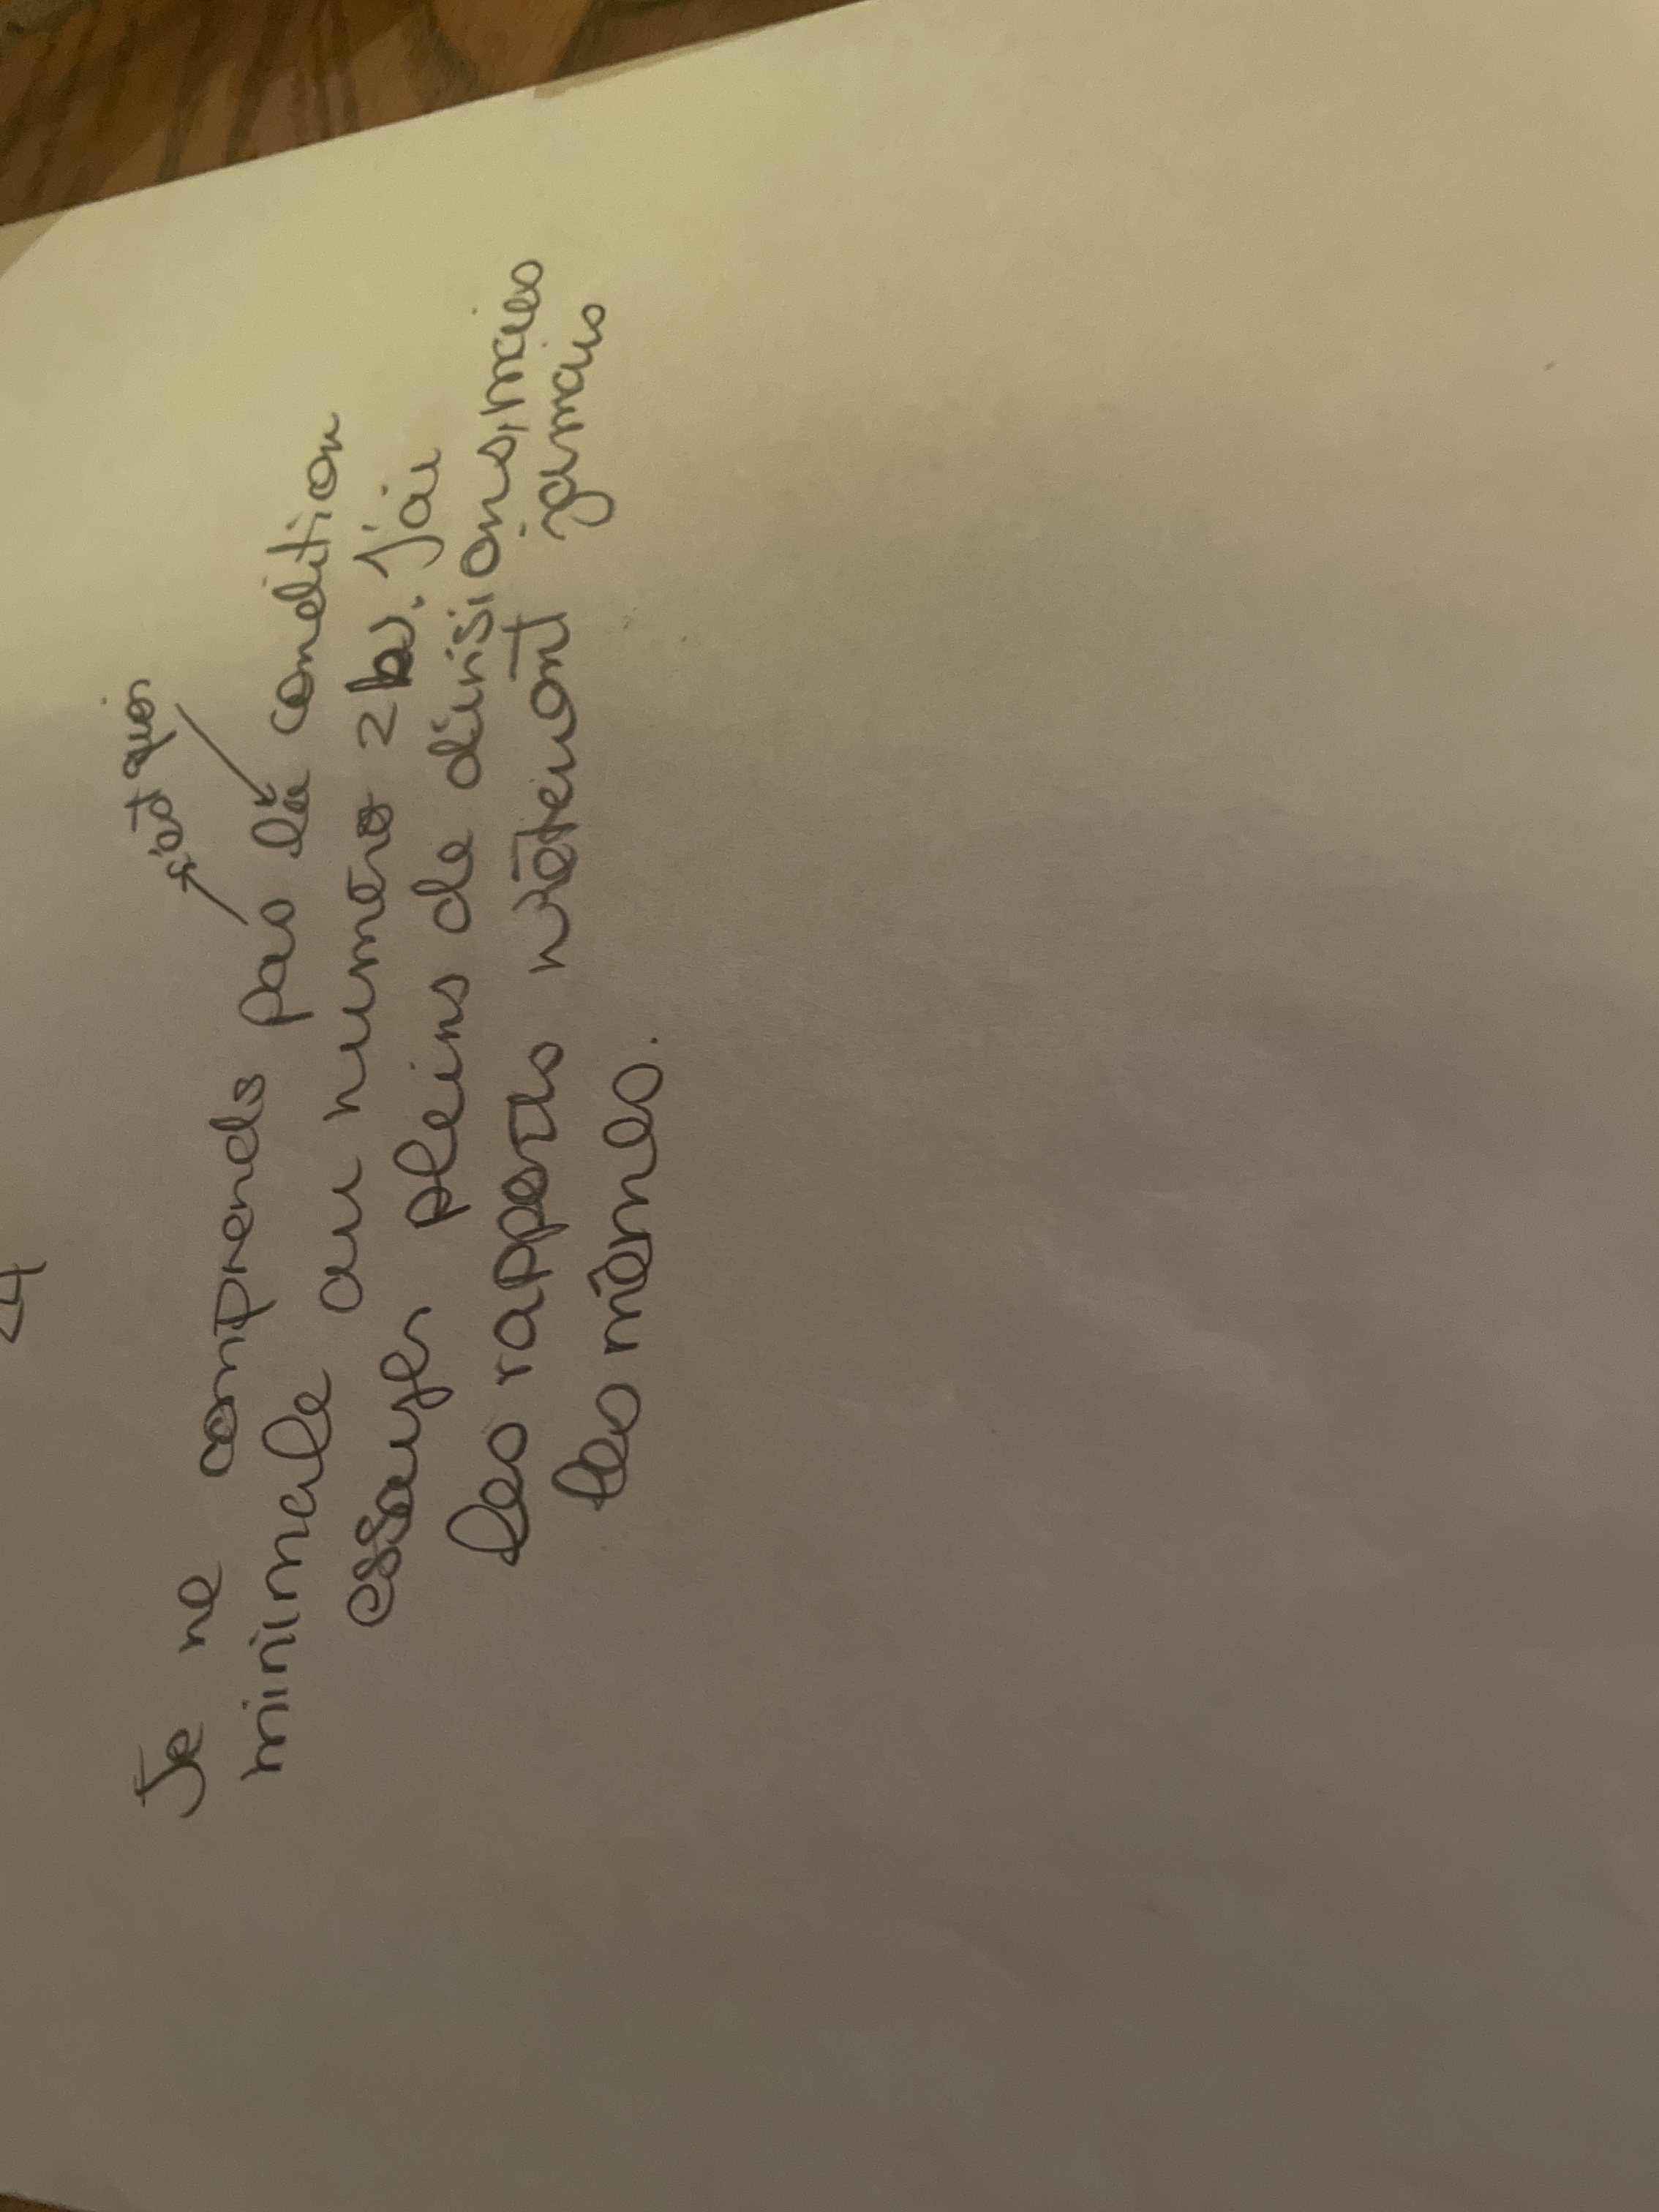 24
c'est quoi
Je ne comprends pas la condition
minimale au numéro 2b. j'ai
essayer pleins de divisions, mais
les rapports n'étaient jamais
les mêmes.